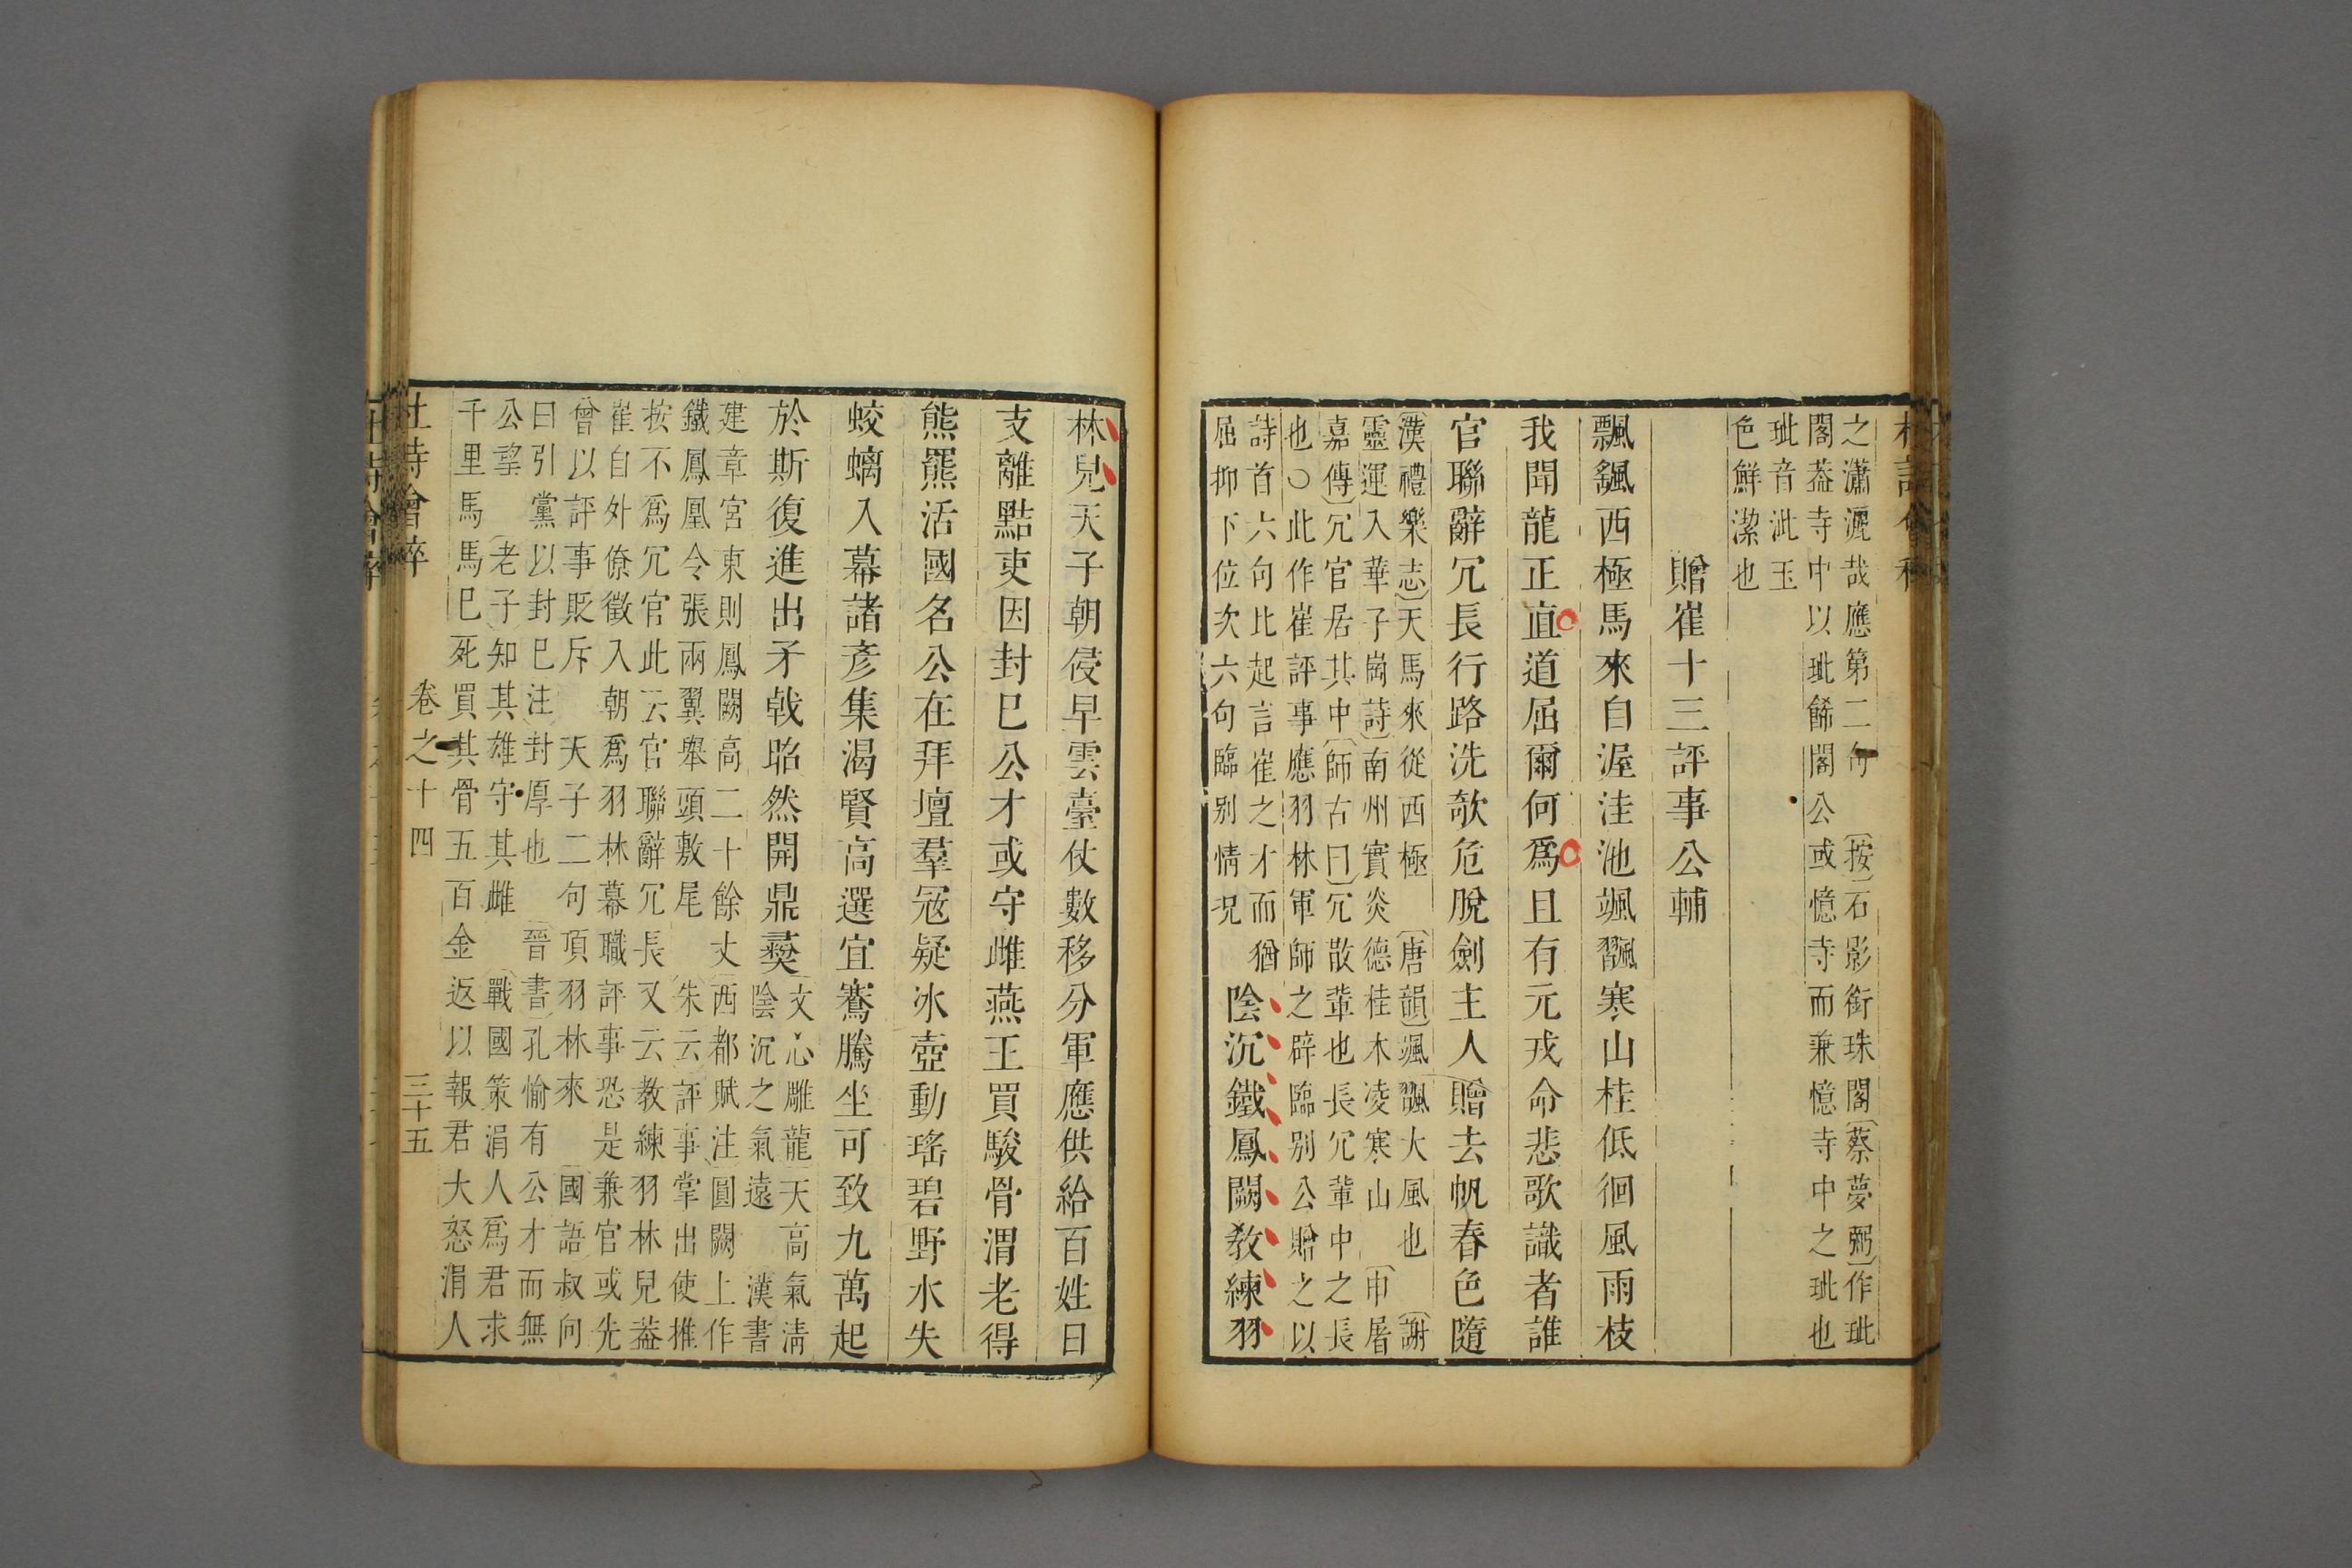 之瀟灑哉應第二句〔按〕石影銜珠閣〔蔡夢弼〕作玭
閣葢寺中以玭餙閣公或憶寺而兼憶寺中之玭也
玭音泚玉
色鮮潔也
贈崔十三評事公輔
飄飄西極馬來自渥洼池颯飁寒山桂低徊風雨枝
我聞龍正直道屈爾何爲且有元戎命悲歌識者誰
官聯辭冗長行路洗欹危脫劍主人贈去帆春色隨
〔漢禮樂志〕天馬來從西極〔唐韻〕颯飁大風也〔謝
靈運入華子崗詩〕南州實炎德桂木凌寒山〔申屠
嘉傳〕冗官居其中〔師古曰〕冗散輩也長冗輩中之長
也○此作崔評事應羽林軍師之辟臨别公贈之以
詩首六句比起言崔之才而猶
屈抑下位次六句臨别情况
陰沉鐵鳳闕敎練羽
林兒天子朝侵早雲臺仗數移分軍應供給百姓日
支離黠吏因封已公才或守雌燕王買駿骨渭老得
熊羆活國名公在拜壇羣宼疑冰壺動瑤碧野水失
蛟螭入幕諸彥集渴賢高選宜騫騰坐可致九萬起
於斯復進出矛戟昭然開鼎彛
〔文心雕龍〕天高氣淸
陰沉之氣遠〔漢書〕
建章宮東則鳳闕高二十餘丈〔西都賦注〕圓闕上作
鐵鳳凰令張兩翼舉頭敷尾〔朱云〕評事掌出使推
按不爲冗官此云官聯辭冗長又云敎練羽林兒葢
崔自外僚徵入朝爲羽林幕職評事恐是兼官或先
曾以評事貶斥天子二句項羽林來〔國語〕叔向
曰引黨以封已〔注〕封厚也〔晉書〕孔愉有公才而無
公望〔老子〕知其雄守其雌〔戰國策〕涓人爲君求
千里馬馬已死買其骨五百金返以報君大怒涓人
杜詩會稡 卷之十四 三十五